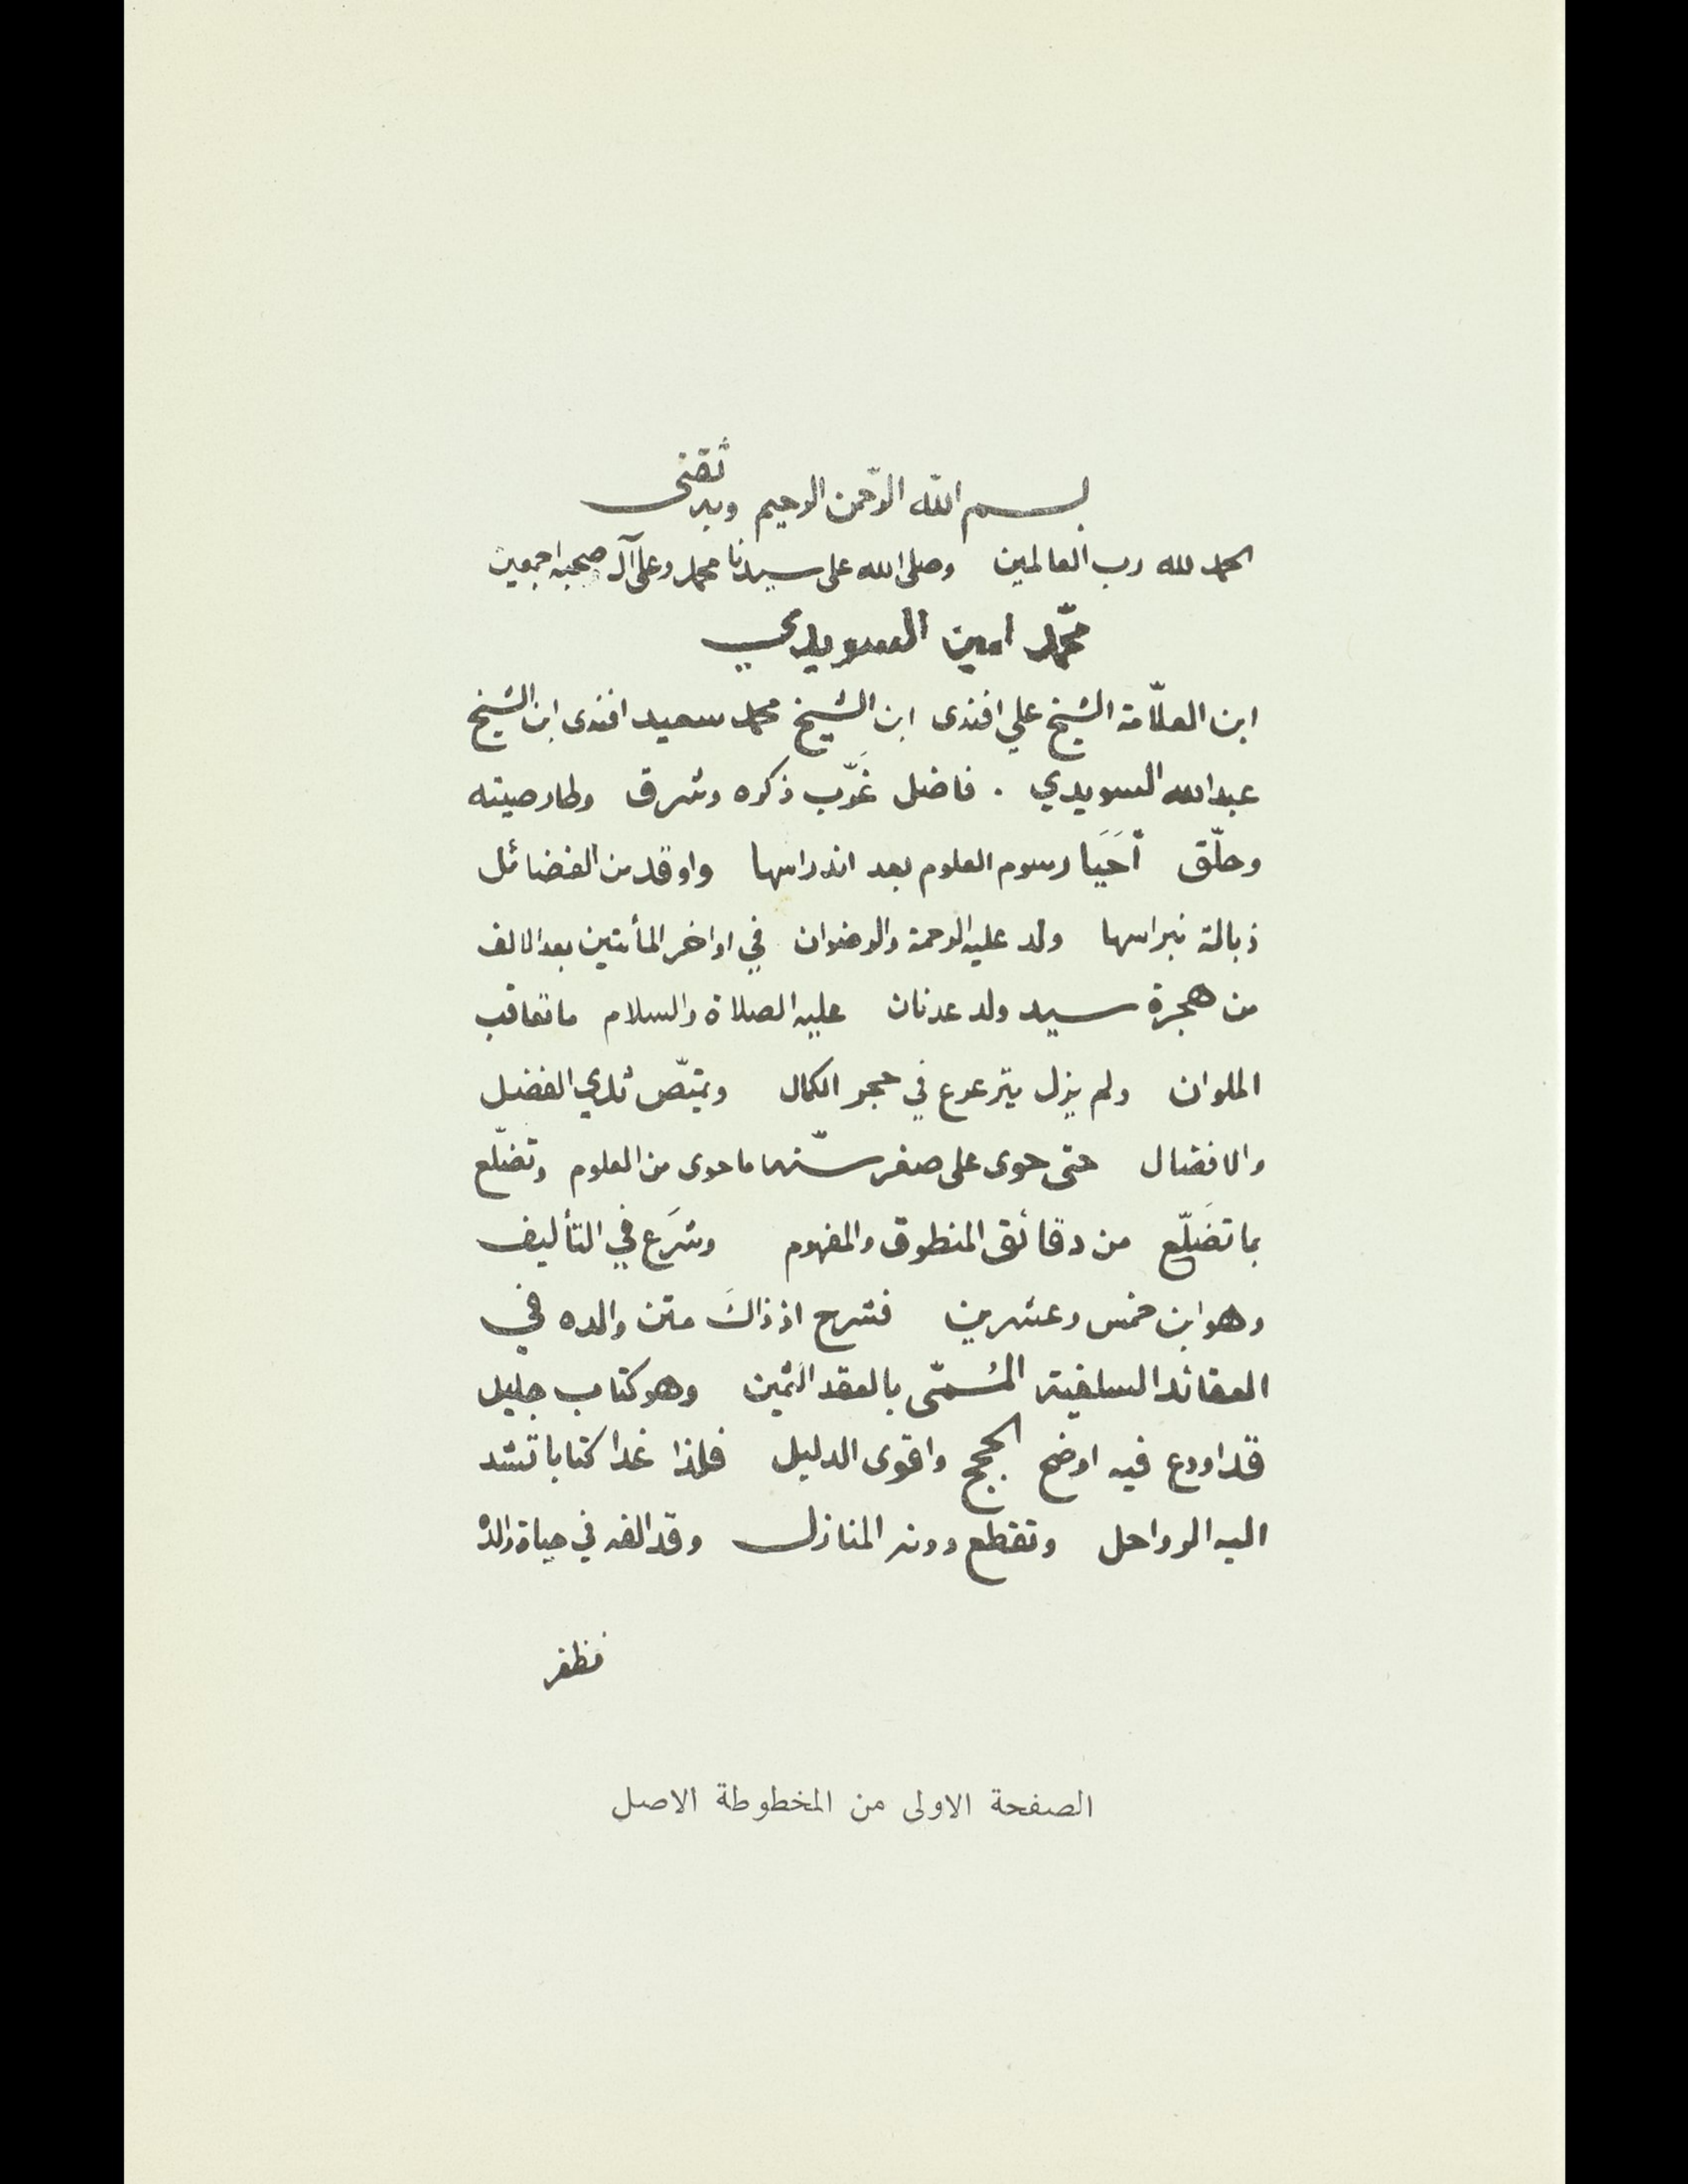 بسم الله الرّحمن الرحيم وبه ثقتي
الحمد لله رب العالمين وصلى الله على سيدنا محمد وعلى آل صحبه اجمعين
محمّد امين السويدي
ابن العلّامة الشيخ علي افندى ابن الشيخ محمد سعيد افندى ابن الشيخ
عبدالله السويدي . فاضل غَرّب ذكره وشرق وطار صيته
وحلّق أحَيَا رسوم العلوم بعد اندراسها واوقد من الفضائل
ذبالة نبراسها ولد عليه الرحمة والرضوان في اواخر المأتين بعد الالف
من هجرة سيد ولد عدنان عليه الصلاة والسلام ما تعاقب
الملوان ولم يزل يترعرع في حجر الكمال ويمتصّ ثدي الفضل
والافضال حتى حوى على صغر سنّه ما حوى من العلوم وتضلّع
بما تضَلّع من دقائق المنطوق والمفهوم وشرَع في التأليف
وهو ابن خمس وعشرين فشرح اذ ذاكَ متن والده في
العقائد السلفية المُسمّى بالعقد الثمين وهو كتاب جليل
قد اودع فيه اوضح الحجج واقوى الدليل فلذا غدا كتابا تشد
اليه الرواحل وتقطع دونه المنازل وقد الفه في حياة والده
فظفر
الصفحة الاولى من المخطوطة الاصل